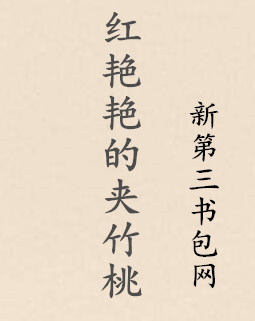 红艳艳的夹竹桃
新第三书包网